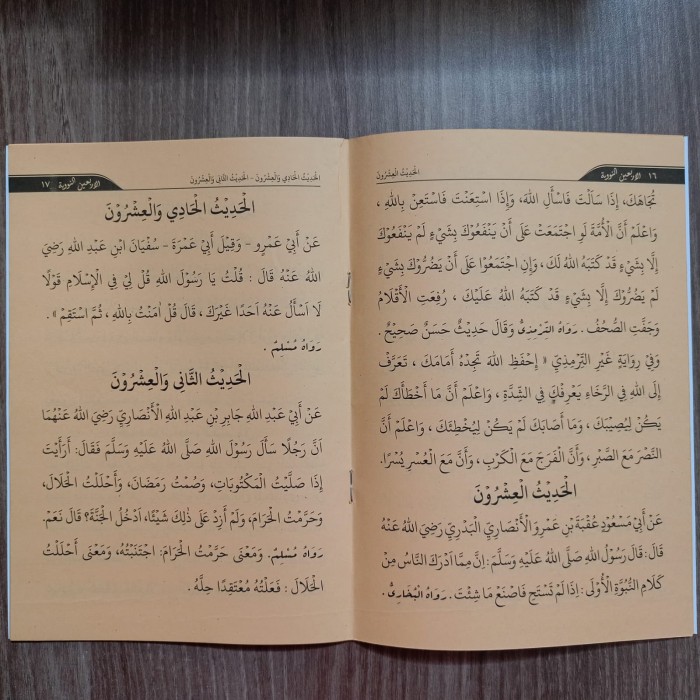 ١٦ الاربعين النووية
الحَدِيْثُ الْعِشْرُوْنَ
تُجَاهَكَ، إِذَا سَأَلْتَ فَاسْأَلِ اللهَ، وَإِذَا اسْتَعَنْتَ فَاسْتَعِنْ بِاللهِ ،
وَاعْلَمْ أَنَّ الْأُمَّةَ لَوِ اجْتَمَعَتْ عَلَى أَنْ يَنْفَعُوْكَ بِشَيْءٍ لَمْ يَنْفَعُوْكَ
إِلَّا بِشَيْءٍ قَدْ كَتَبَهُ اللهُ لَكَ ، وَإِنِ اجْتَمَعُوْا عَلَى أَنْ يَضُرُّوْكَ بِشَيْءٍ
لَمْ يَضُرُّوْكَ إِلَّا بِشَيْءٍ قَدْ كَتَبَهُ اللهُ عَلَيْكَ ، رُفِعَتِ الْأَقْلَامُ
وَجَفَّتِ الصُّحُفُ . رَوَاهُ التِّرْمِذِىُّ وَقَالَ حَدِيْثٌ حَسَنٌ صَحِيْحٌ .
وَفِيْ رِوَايَةِ غَيْرِ التِّرْمِذِيِّ « إِحْفَظِ اللهَ تَجِدْهُ أَمَامَكَ ، تَعَرَّفْ
إِلَى اللهِ فِي الرَّخَاءِ يَعْرِفْكَ فِي الشِّدَّةِ ، وَاعْلَمْ أَنَّ مَا أَخْطَأَكَ لَمْ
يَكُنْ لِيُصِيْبَكَ ، وَمَا أَصَابَكَ لَمْ يَكُنْ لِيُخْطِئَكَ ، وَاعْلَمْ أَنَّ
النَّصْرَ مَعَ الصَّبْرِ ، وَأَنَّ الْفَرَجَ مَعَ الْكَرْبِ ، وَأَنَّ مَعَ الْعُسْرِ يُسْرًا.
الْحَدِيْثُ الْعِشْرُوْنَ
عَنْ أَبِيْ مَسْعُوْدٍ عُقْبَةَ بْنِ عَمْرٍو الْأَنْصَارِيِّ الْبَدْرِيِّ رَضِيَ اللهُ عَنْهُ
قَالَ : قَالَ رَسُوْلُ اللهِ صَلَّى اللهُ عَلَيْهِ وَسَلَّمَ : إِنَّ مِمَّا أَدْرَكَ النَّاسُ مِنْ
كَلَامِ النُّبُوَّةِ الْأُوْلَى : إِذَا لَمْ تَسْتَحِ فَاصْنَعْ مَا شِئْتَ . رَوَاهُ الْبُخَارِىُّ .
الحَدِيْثُ الْحَادِي وَالْعِشْرُوْنَ - الحَدِيْثُ الثَّانِى وَالْعِشْرُوْنَ
الاربعين النووية ١٧
الْحَدِيْثُ الْحَادِي وَالْعِشْرُوْنَ
عَنْ أَبِيْ عَمْرٍو - وَقِيْلَ أَبِيْ عَمْرَةَ - سُفْيَانَ ابْنِ عَبْدِ اللهِ رَضِيَ
اللهُ عَنْهُ قَالَ : قُلْتُ يَا رَسُوْلَ اللهِ قُلْ لِيْ فِي الْإِسْلَامِ قَوْلًا
لَا أَسْأَلُ عَنْهُ أَحَدًا غَيْرَكَ ، قَالَ قُلْ اٰمَنْتُ بِاللهِ ، ثُمَّ اسْتَقِمْ » .
رَوَاهُ مُسْلِمٌ .
الْحَدِيْثُ الثَّانِى وَالْعِشْرُوْنَ
عَنْ أَبِيْ عَبْدِ اللهِ جَابِرِ بْنِ عَبْدِ اللهِ الْأَنْصَارِيِّ رَضِيَ اللهُ عَنْهُمَا
اَنَّ رَجُلًا سَأَلَ رَسُوْلَ اللهِ صَلَّى اللهُ عَلَيْهِ وَسَلَّمَ فَقَالَ: أَرَأَيْتَ
إِذَا صَلَّيْتُ الْمَكْتُوْبَاتِ، وَصُمْتُ رَمَضَانَ، وَأَحْلَلْتُ الْحَلَالَ،
وَحَرَّمْتُ الْحَرَامَ، وَلَمْ أَزِدْ عَلَى ذٰلِكَ شَيْئًا، أَدْخُلُ الْجَنَّةَ؟ قَالَ نَعَمْ.
رَوَاهُ مُسْلِمٌ. وَمَعْنَى حَرَّمْتُ الْحَرَامَ: اجْتَنَبْتُهُ، وَمَعْنَى أَحْلَلْتُ
الْحَلَالَ : فَعَلْتُهُ مُعْتَقِدًا حِلَّهُ .